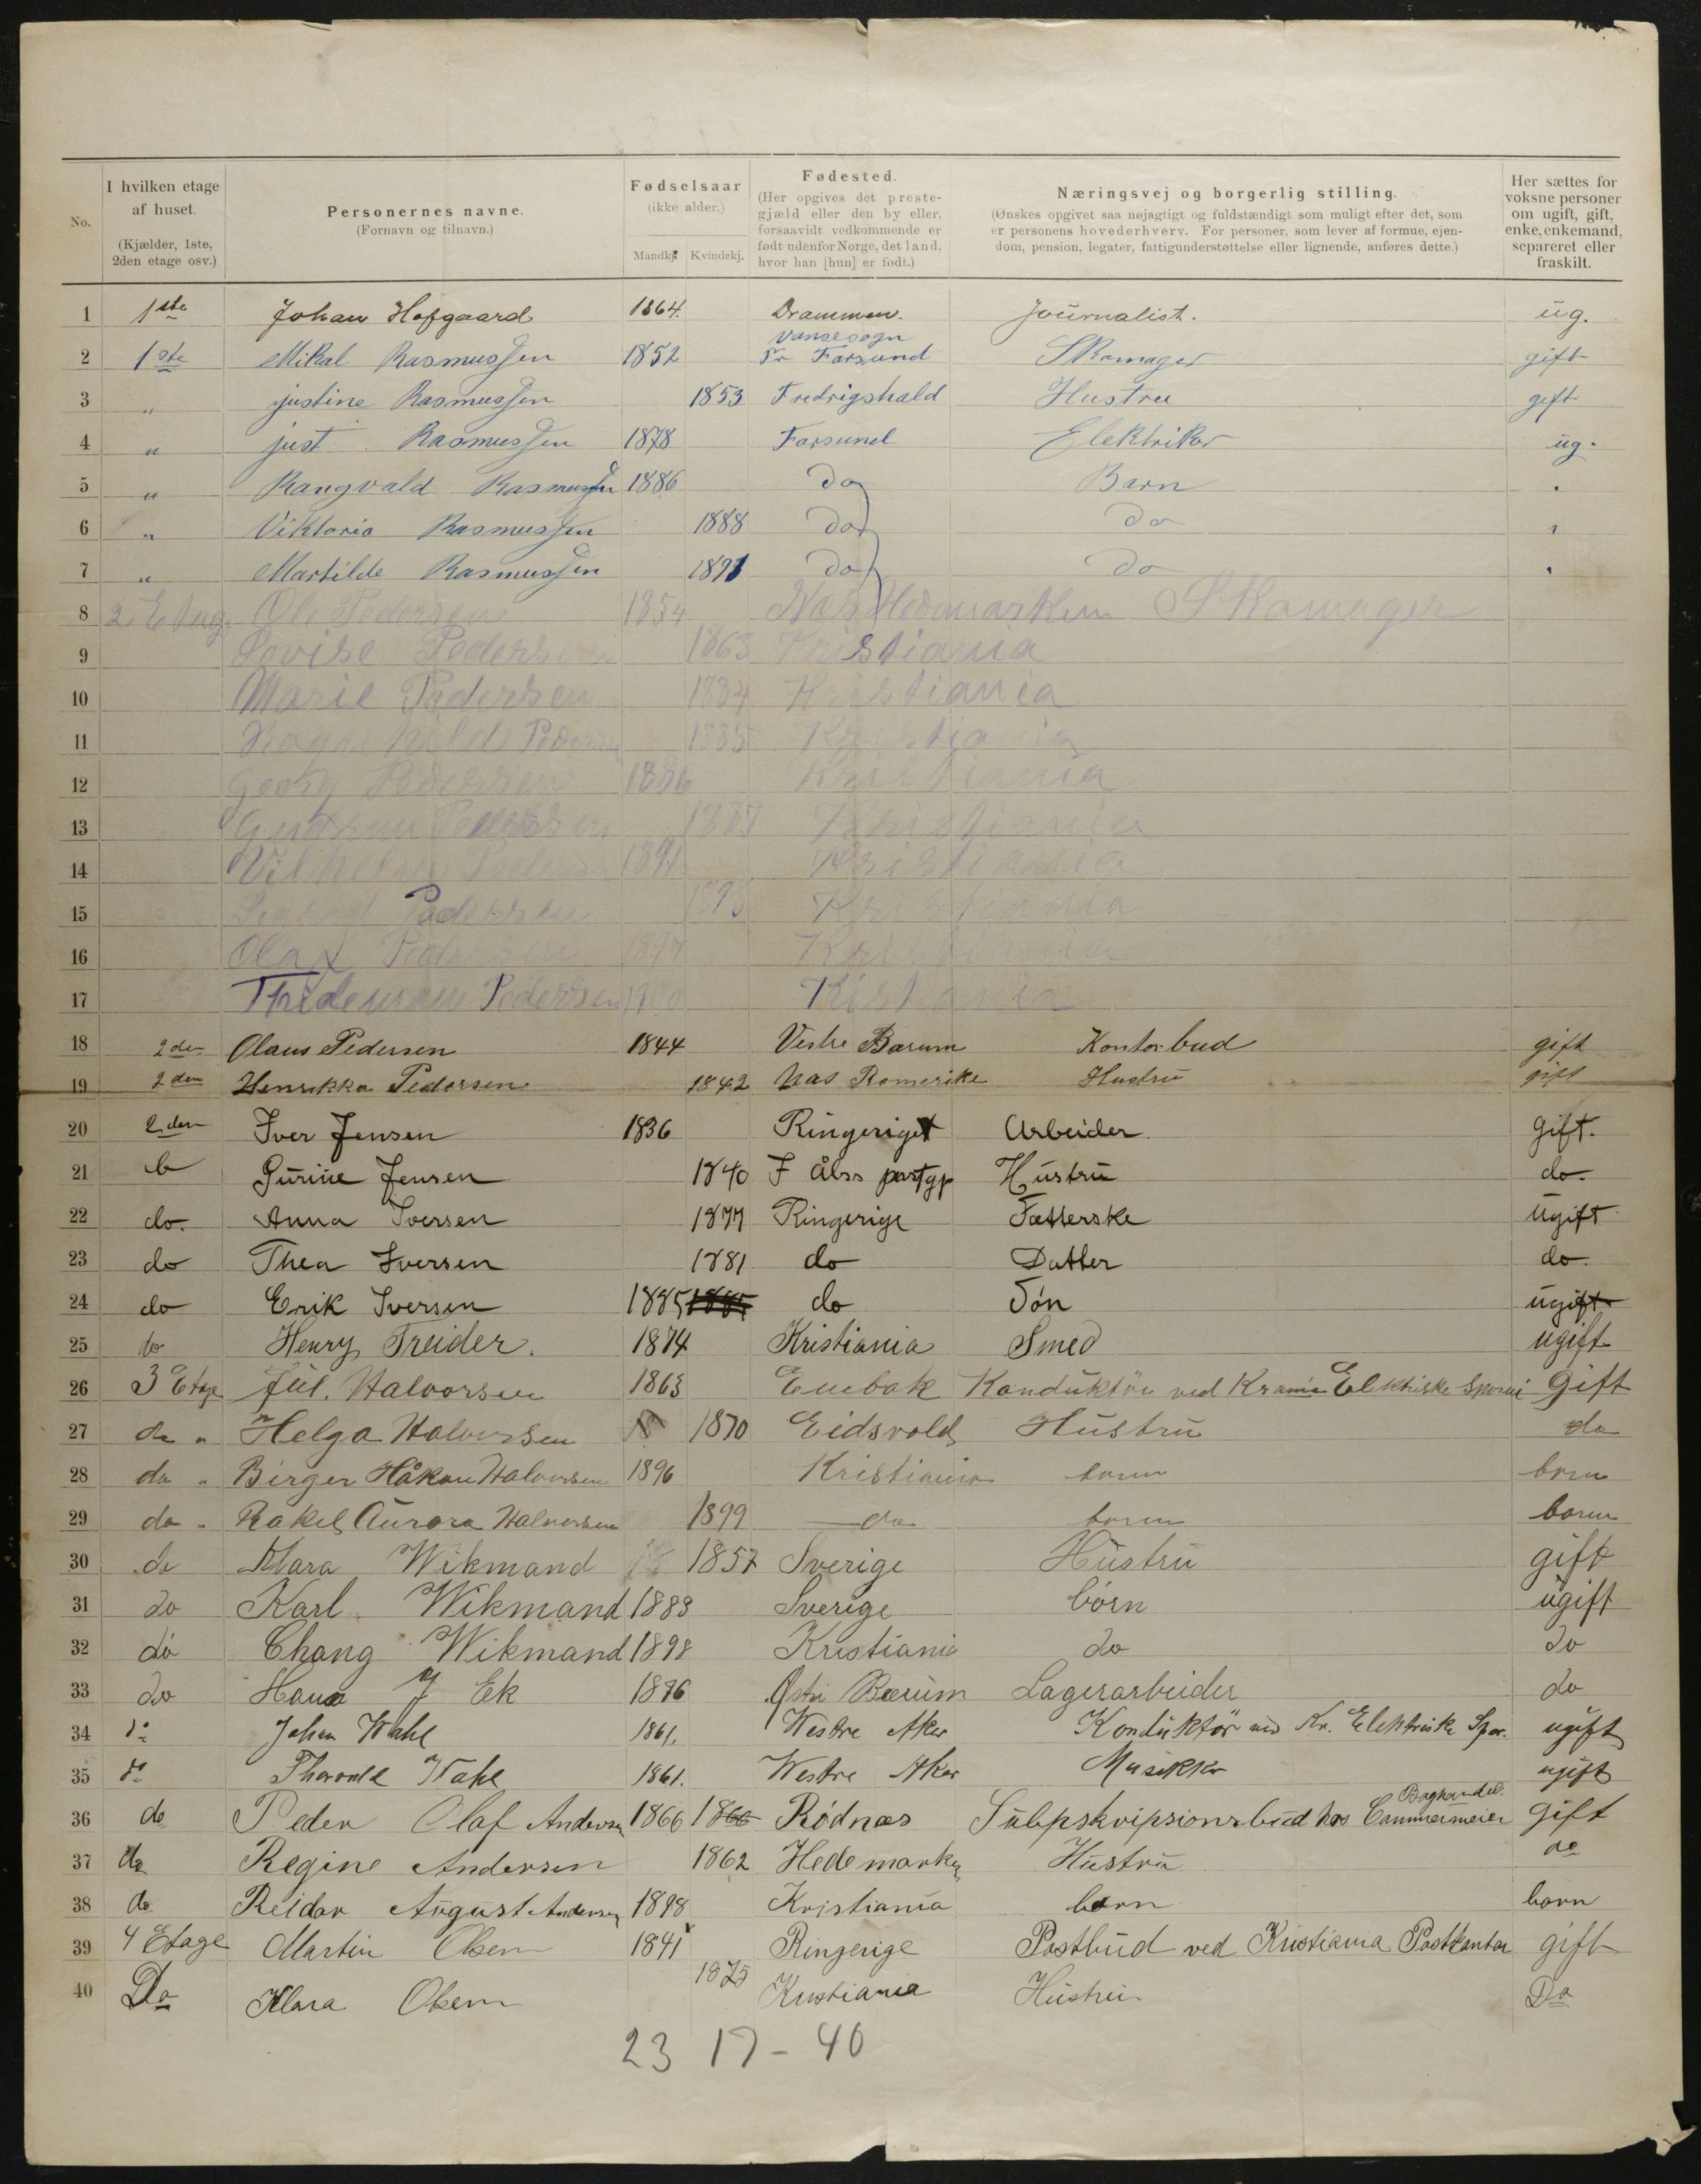 No.
I hvilken etage af huset. (Kjælder, 1ste, 2den etage osv.)
Personernes navne. (Fornavn og tilnavn.)
Fødselsaar (ikke alder.) Mandkj. Kvindekj.
Fødested. (Her opgives det prestegjæld eller den by eller, forsaavidt vedkommende er født udenfor Norge, det land, hvor han [hun] er født.)
Næringsvej og borgerlig stilling. (Ønskes opgivet saa nøjagtigt og fuldstændigt som muligt efter det, som er personens hovederhverv. For personer, som lever af formue, ejendom, pension, legater, fattigunderstøttelse eller lignende, anføres dette.)
Her sættes for voksne personer om ugift, gift, enke, enkemand, separeret eller fraskilt.
1 1ste Johan Hofgaard 1864. Drammen. Journalist. ug.
2 1ste Mikal Rasmussen 1852 Vansesogn Pr Farsund Skomager gift
3 " justine Rasmussen 1853 Fredrigshald Hustru gift
4 " just Rasmussen 1878 Farsund Elektriker ug.
5 " Rangvald Rasmussen 1886 do Barn
6 " Viktoria Rasmussen 1888 do do
7 " Martilde Rasmussen 1891 do do
8 2 Etag. Ole Pedersen 1854 Næs Hedmarken Skomager
9 Lovise Pedersen 1863 Kristiania
10 Marie Pedersen 1884 Kristiania
11 Ragnhild Pedersen 1885 Kristiania
12 Georg Pedersen 1886 Kristiania
13 Gudrun Pedersen 1887 Kristiania
14 Vilhelm Pedersen 1891 Kristiania
15 Pedersen 1893 Kristiania
16 Olaf Pedersen 1897 Kristiania
17 Thidemann Pedersen 1900 Kristiania
18 2den Olaus Pedersen 1844 Vestre Bærum Kontorbud gift
19 2den Henrikka Pedersen 1842 Næs Romerike Hustru gift
20 2den Iver Jensen 1836 Ringeriget Arbeider. gift.
21 Gurine Jensen 1840 Hustru do.
22 do. Anna Iversen 1877 Ringerige ugift
23 do Thea Iversen 1881 do Datter do.
24 do Erik Iversen 1885 1885 do Søn ugift
25 do Henry Treider. 1874 Kristiania Smed ugift
26 3 Etage Jul. Halvorsen 1863 Enebak Konduktør ved Kr.ania Elektriske Sporvei Gift
27 do " Helga Halvorsen 18 1870 Eidsvold Hustru do
28 do " Birger Håkon Halvorsen 1896 Kristiania barn barn
29 do " Rakel Aurora Halvorsen 1899 do barn barn
30 do Klara Wikmand 1857 Sverige Hustru gift
31 do Karl Wikmand 1883 Sverige börn ugift
32 do Chang Wikmand 1898 Kristiania do do
33 do Hans J Ek 1876 Østre Bærum Lagerarbeider do
34 do Johan Wahl 1861. Westre Aker Konduktör ved Kr. Elektriske Spor. ugift
35 do Thorvald Wahl 1861. Westre Aker Musiker ugift
36 do Peder Olaf Andersen 1866 1866 Rödnæs Subpskripsionsbud hos Boghandel. Cammermeier gift
37 do Regine Andersen 1862 Hedemarken Hustru do
38 do Reidar August Andersen 1898 Kristiania barn barn
39 4 Etage Martin Olsen 1841 Ringerige Postbud ved Kristiania Postkontor gift
40 Do Klara Olsen 1875 Kristiania Hustru Do
23 17 - 40